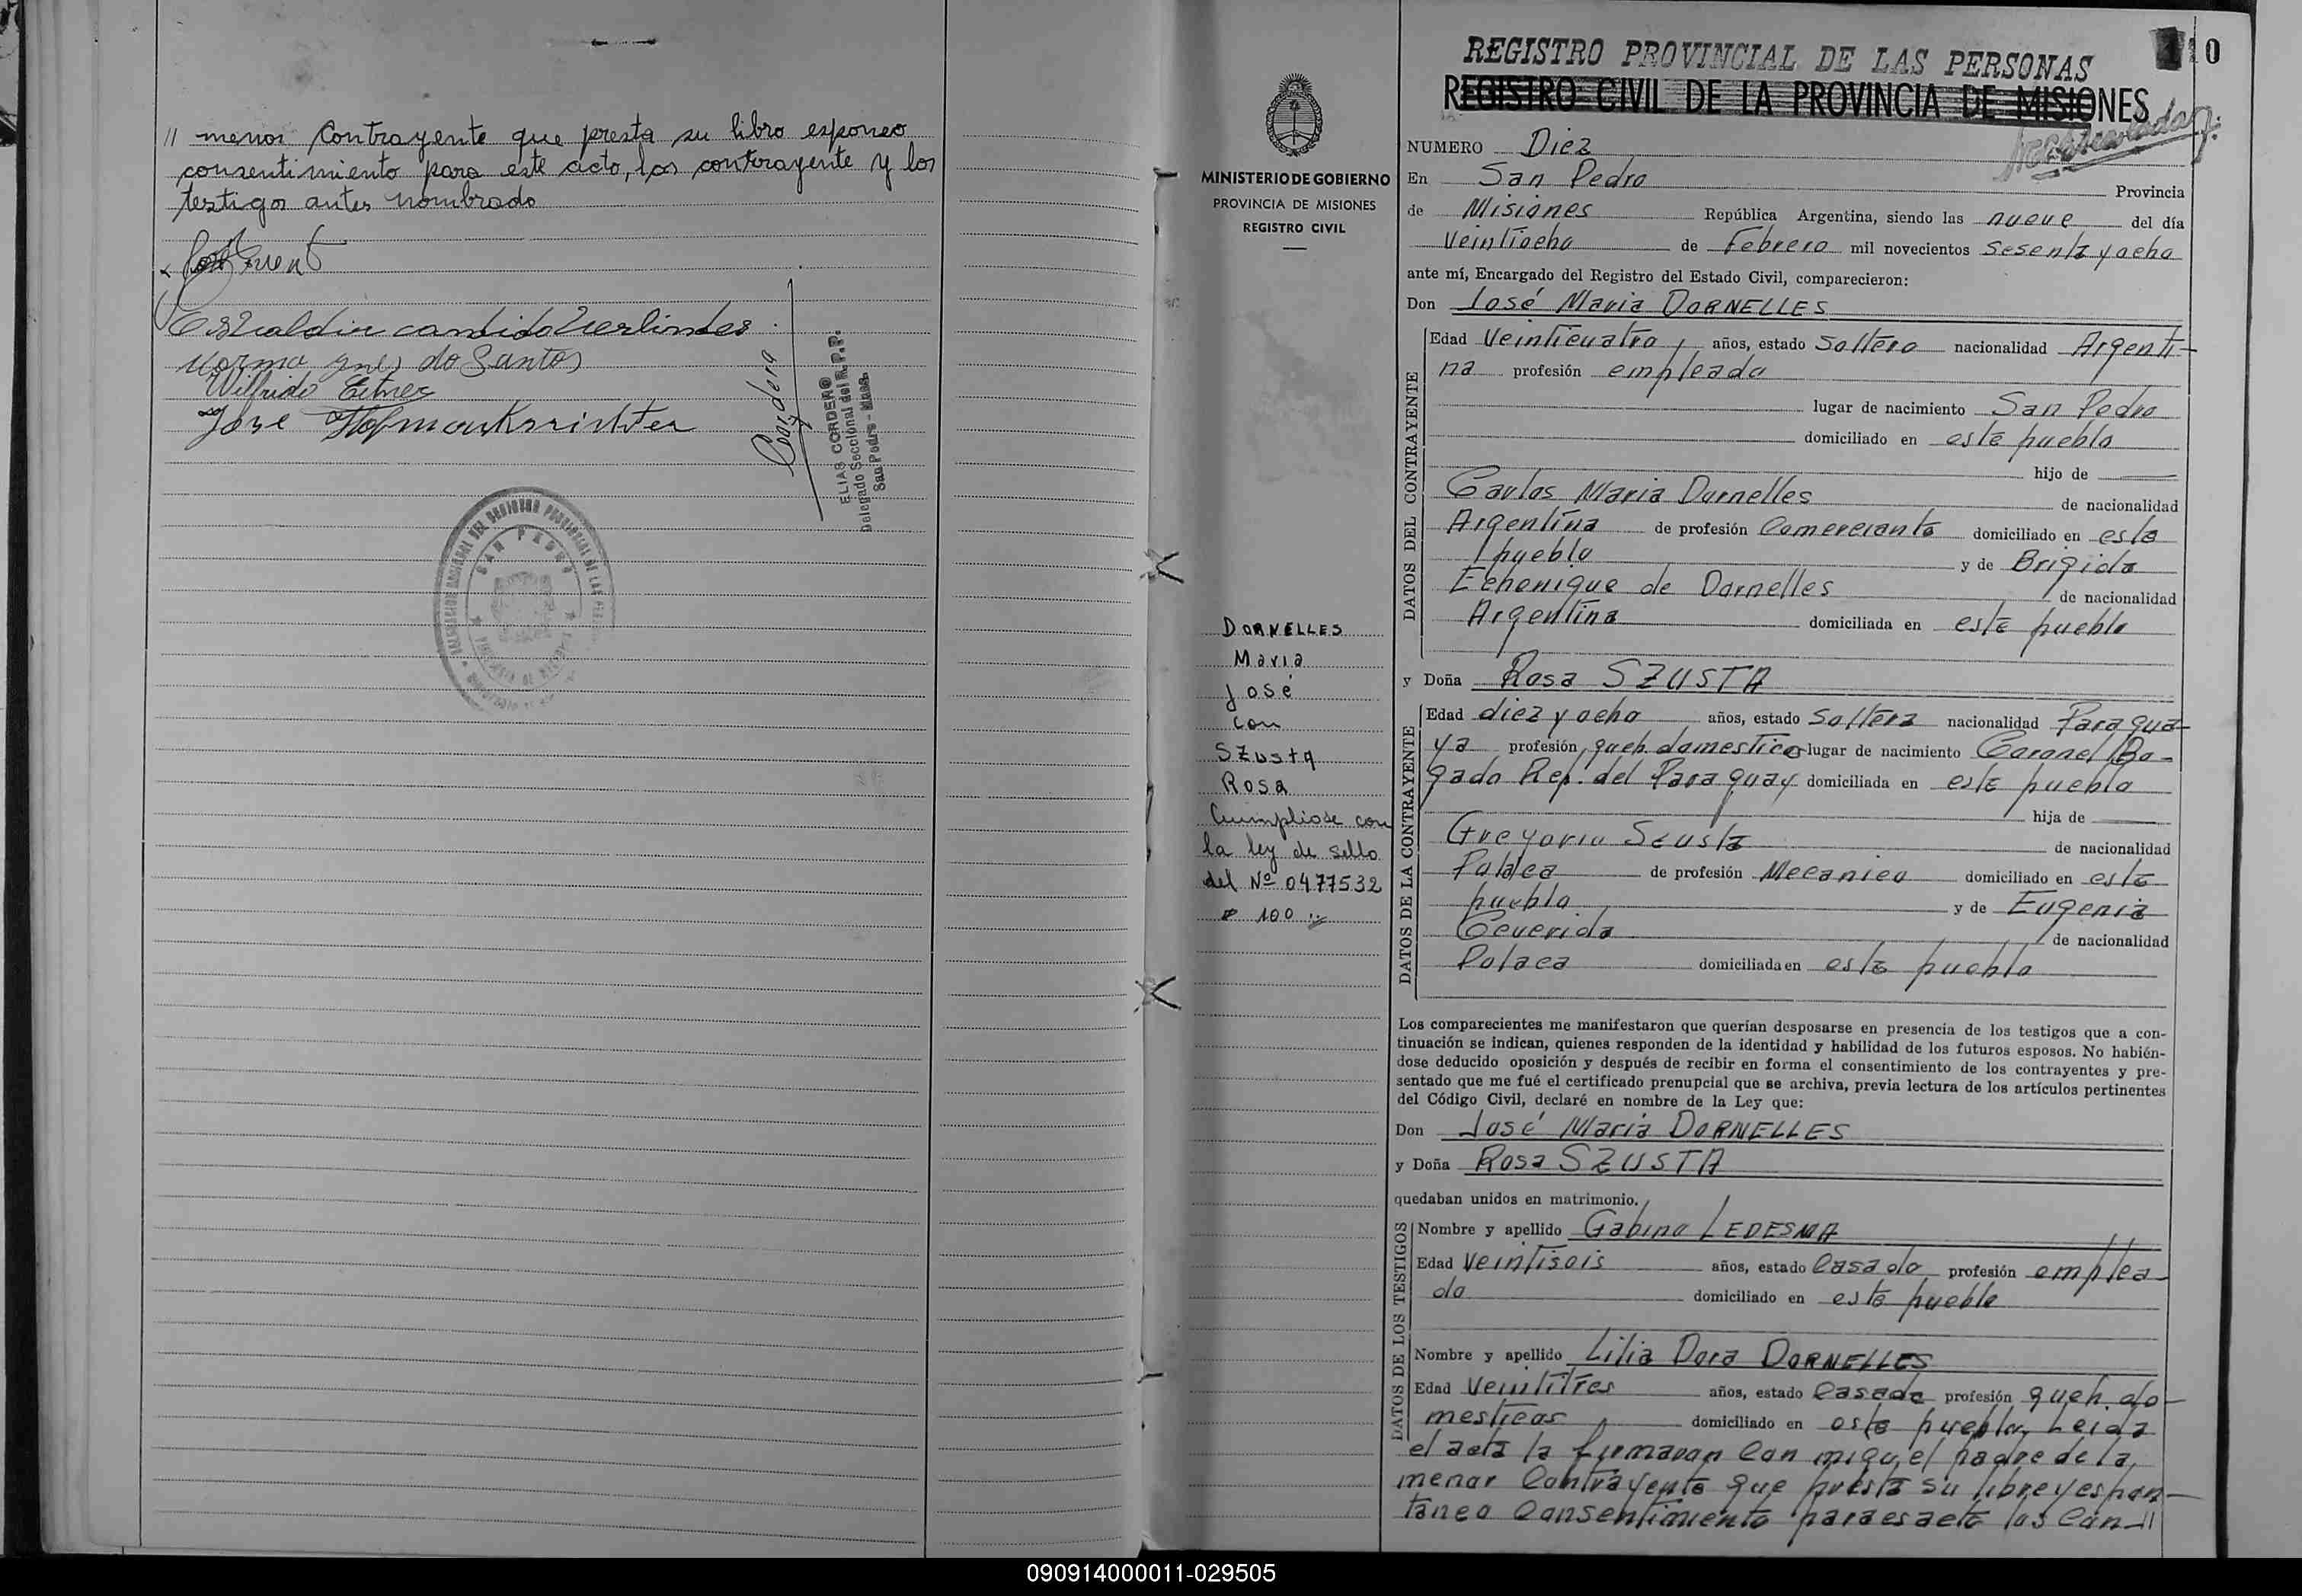 // menor contrayente que presta su libro esponeo
consentimiento para este acto, los contrayente y los
testigos antes nombrado
Norma Ynes do Santos
Wilfrido
Jose
Cordero
ELIAS CORDERO
Delegado Seccional del R.P.P.
San Pedro - Mnes.
SAN PEDRO
MINISTERIO DE GOBIERNO
PROVINCIA DE MISIONES
REGISTRO CIVIL
DORNELLES
Maria
José
con
Szusta
Rosa
Cumpliose con
la ley de sello
del Nº 0477532
$ 100
REGISTRO PROVINCIAL DE LAS PERSONAS
10
REGISTRO CIVIL DE LA PROVINCIA DE MISIONES
NUMERO Diez
En San Pedro Provincia
de Misiones República Argentina, siendo las nueve del día
Veintiocho de Febrero mil novecientos sesenta y ocho
ante mí, Encargado del Registro del Estado Civil, comparecieron:
Don José Maria DORNELLES
DATOS DEL CONTRAYENTE
Edad Veinticuatro años, estado Soltero nacionalidad Argenti-
na profesión empleado
lugar de nacimiento San Pedro
domiciliado en este pueblo
hijo de
Carlos Maria Dornelles de nacionalidad
Argentina de profesión Comerciante domiciliado en este
pueblo y de Brigida
Echenique de Dornelles de nacionalidad
Argentina domiciliada en este pueblo
y Doña Rosa SZUSTA
DATOS DE LA CONTRAYENTE
Edad diez y ocho años, estado Soltera nacionalidad Paragua-
ya profesión queh. domesticos lugar de nacimiento Coronel Bo-
gado Rep. del Paraguay domiciliada en este pueblo
hija de
Gregorio Szusta de nacionalidad
Polaca de profesión Mecanico domiciliado en este
pueblo y de Eugenia
Ceverida de nacionalidad
Polaca domiciliada en este pueblo
Los comparecientes me manifestaron que querían desposarse en presencia de los testigos que a con-
tinuación se indican, quienes responden de la identidad y habilidad de los futuros esposos. No habién-
dose deducido oposición y después de recibir en forma el consentimiento de los contrayentes y pre-
sentado que me fué el certificado prenupcial que se archiva, previa lectura de los artículos pertinentes
del Código Civil, declaré en nombre de la Ley que:
Don José Maria DORNELLES
y Doña Rosa SZUSTA
quedaban unidos en matrimonio.
DATOS DE LOS TESTIGOS
Nombre y apellido Gabino LEDESMA
Edad Veintiseis años, estado Casado profesión emplea-
do domiciliado en este pueblo
Nombre y apellido Lilia Dora DORNELLES
Edad Veintitres años, estado Casada profesión queh. do-
mesticos domiciliado en este pueblo, Leida
el acta la firmaron con migo, el padre de la
menor Contrayente que presta su libre y espon-
taneo consentimiento para es acto los con-//
090914000011-029505